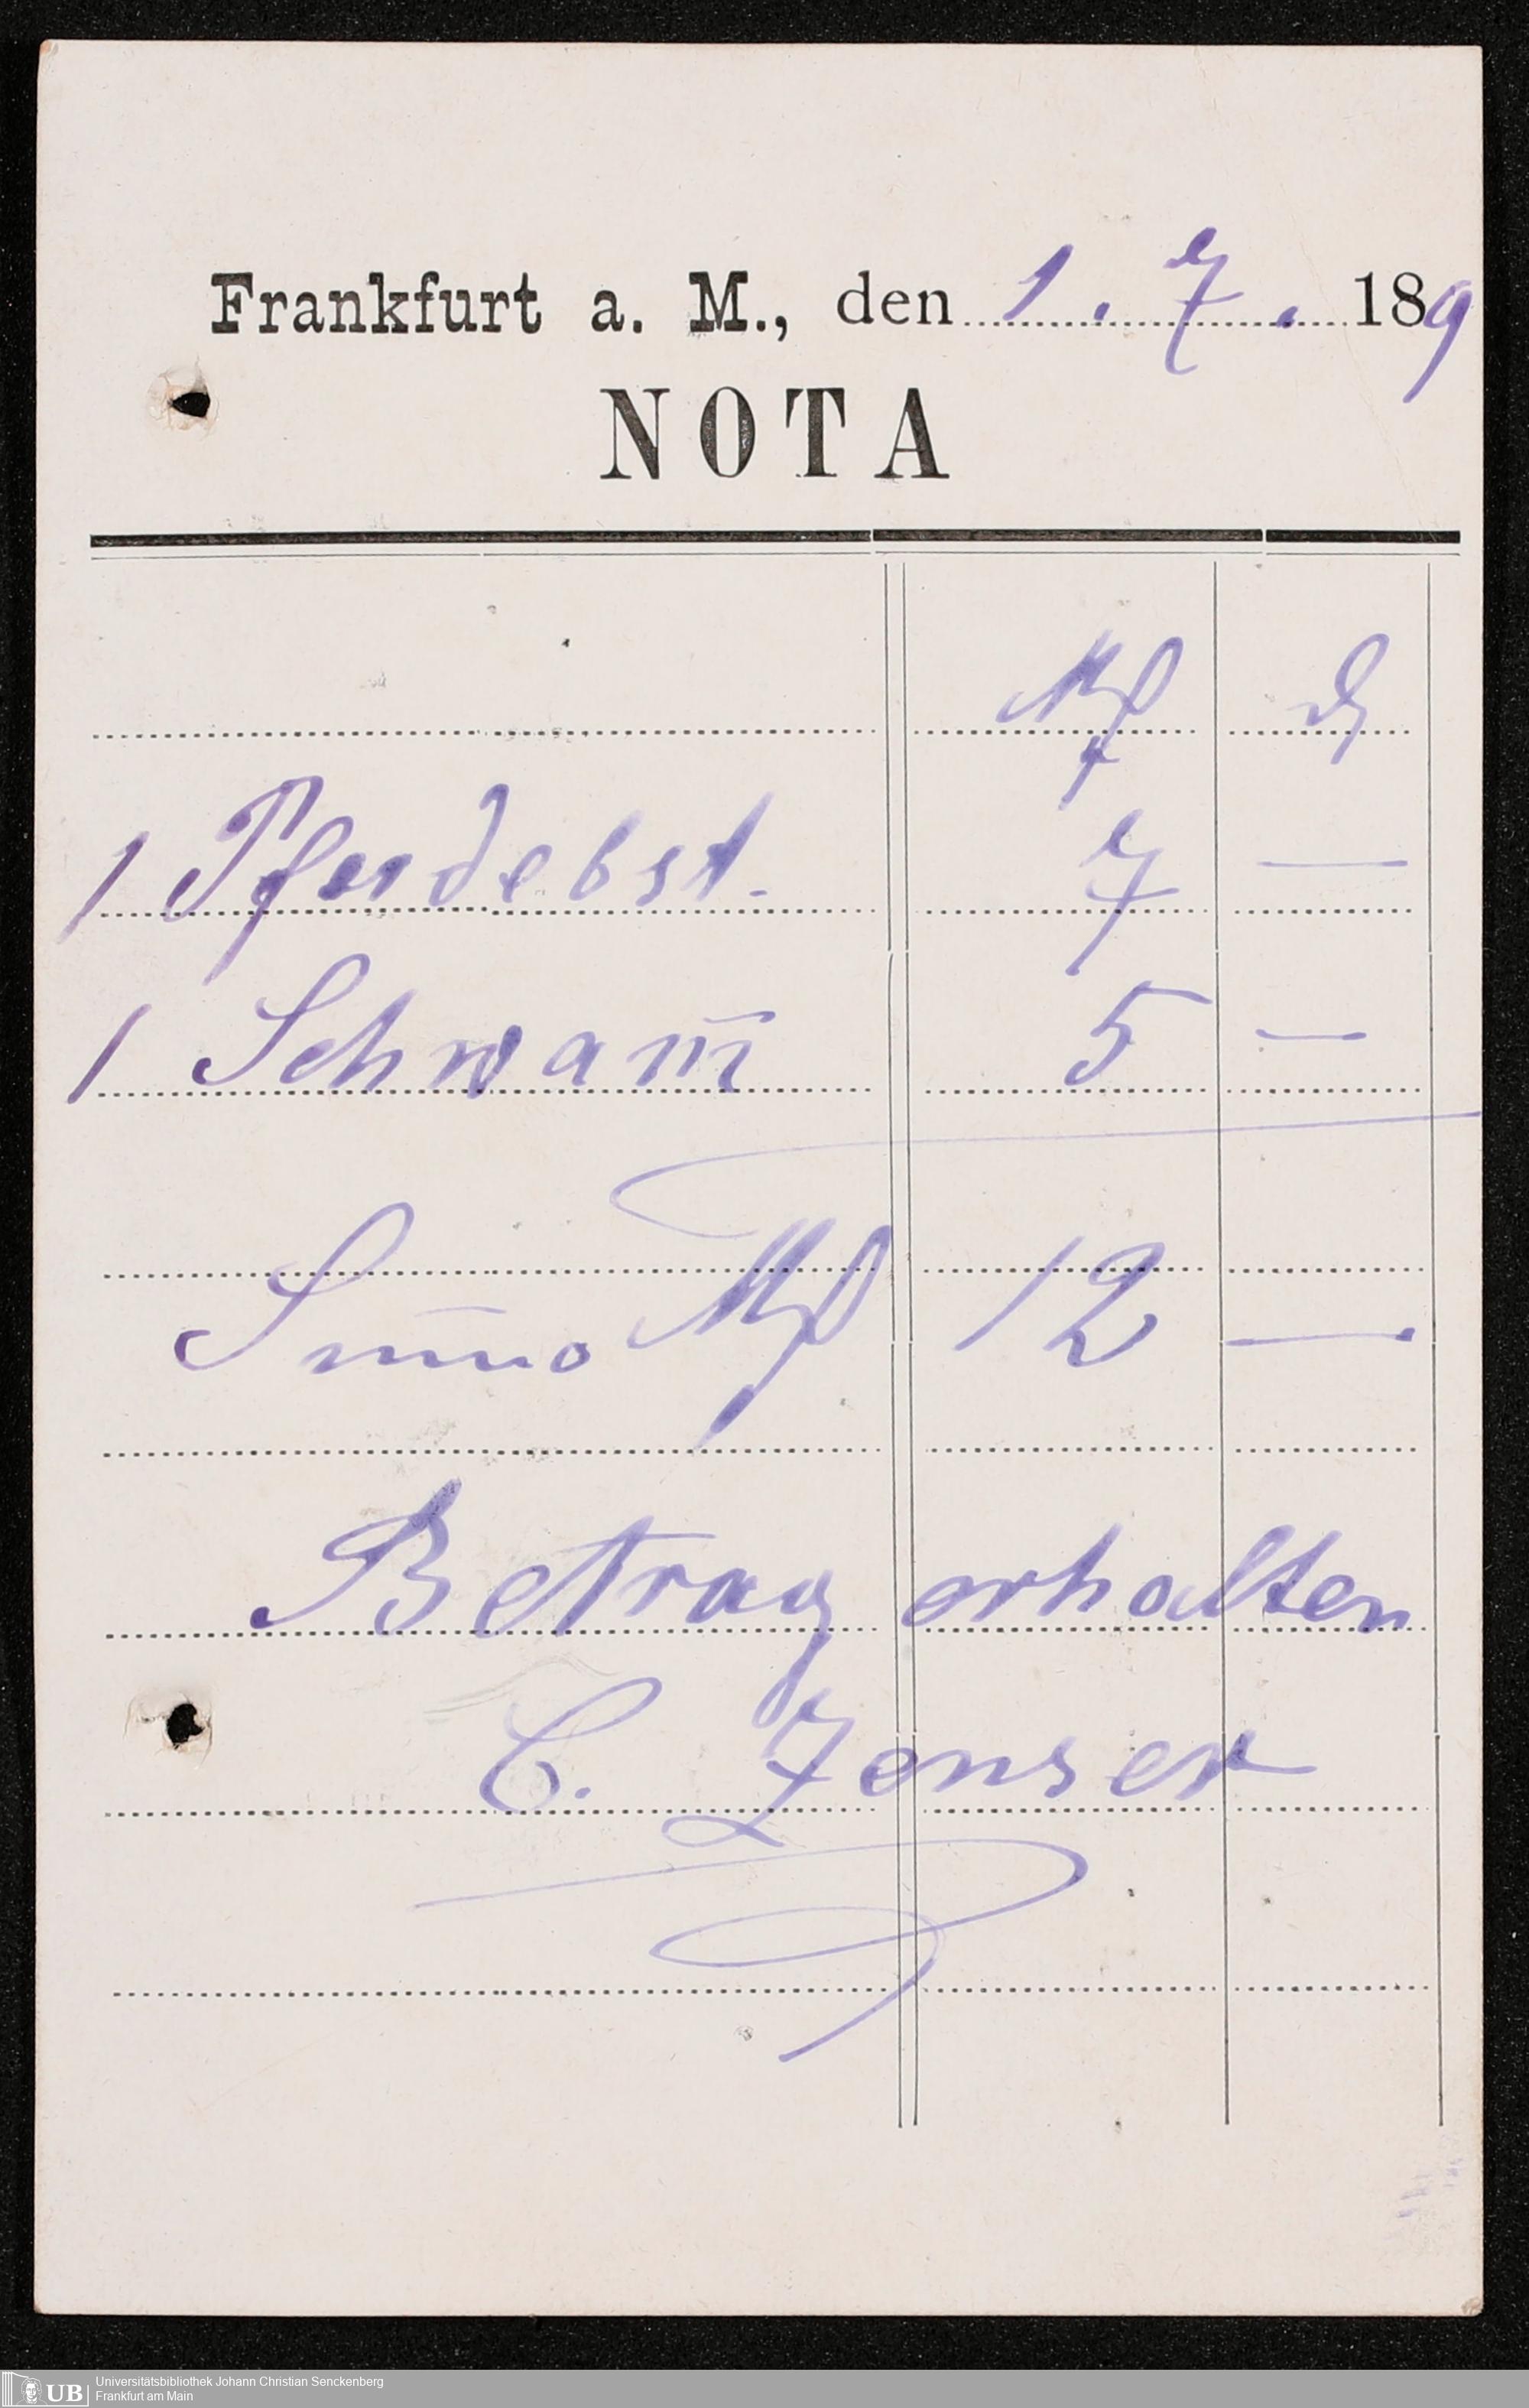 Frankfurt a. M., den 1. 7. 189
NOTA
M ₰
1 Pferdebst. 7 —
1 Schwam̅ 5 —
Sum̅a M 12 —
Betrag erhalten
C. Jenser
UB Universitätsbibliothek Johann Christian Senckenberg
Frankfurt am Main